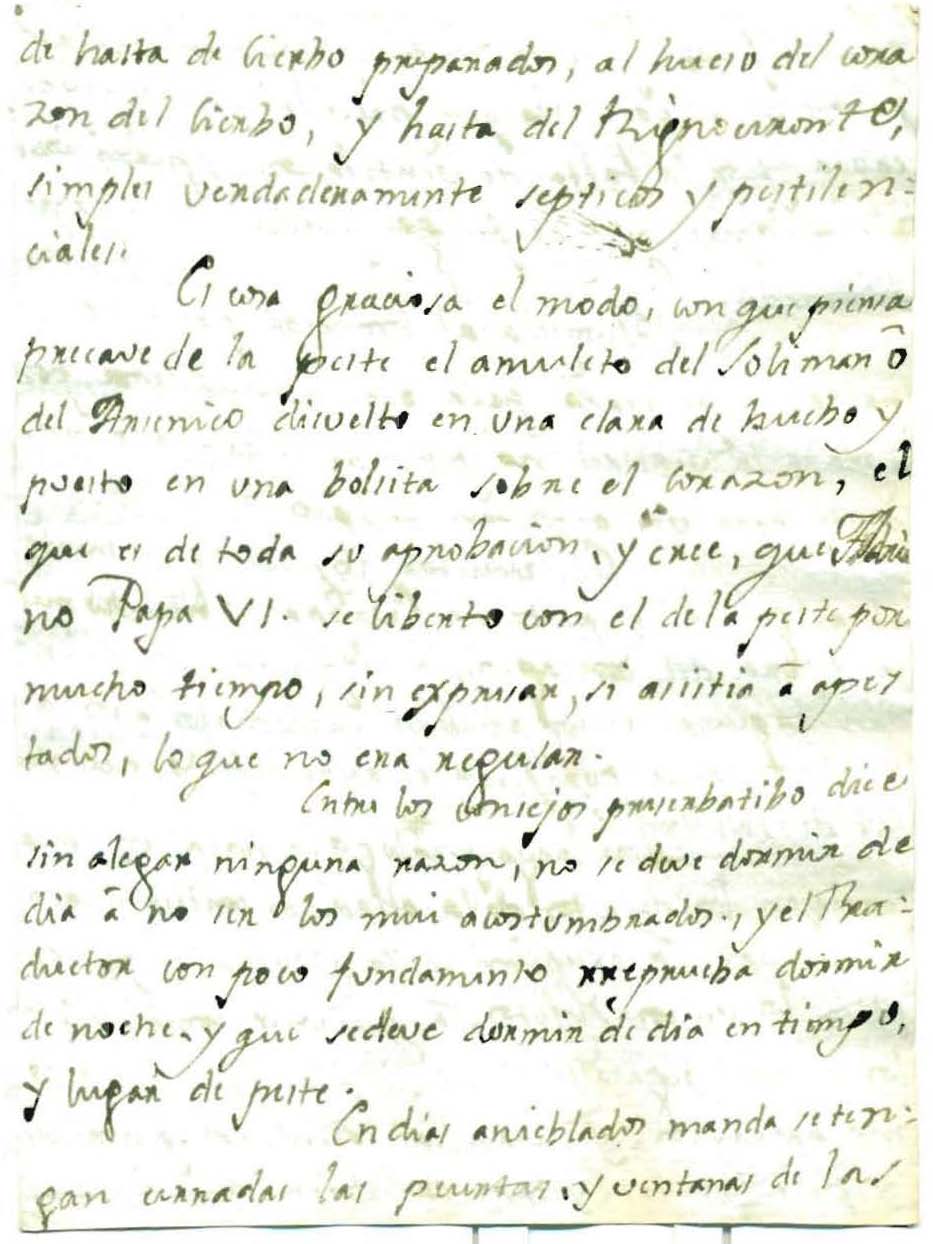 de hasta de Cierbo preparados, al hueso del cora
zon del Cierbo, y hasta del Rignoceronte,
simples verdaderamente septicos y pestilen=
ciales.
Es cosa graciosa el modo, con que piensa
precave de la peste el amuleto del Soliman ô
del Arsenico disuelto en una clara de huebo y
puesto en una bolsita sobre el corazon, el
que es de toda su aprobacion, y cree, que Adria
no Papa VI. se liberto con el de la peste por
mucho tiempo, sin expresar, si assitia â apes
tados, lo que no era regular.
Entre los consejos preserbatibo dice
sin alegar ninguna razon, no se deve dormir de
dia â no ser los mui acostumbrados, y el Tra=
ductor con poco fundamento rreprueba dormir
de noche, y que se deve dormir de dia en tiempo,
y lugar de peste.
En dias anieblados manda se ten=
gan cerradas las puertas, y ventanas de las